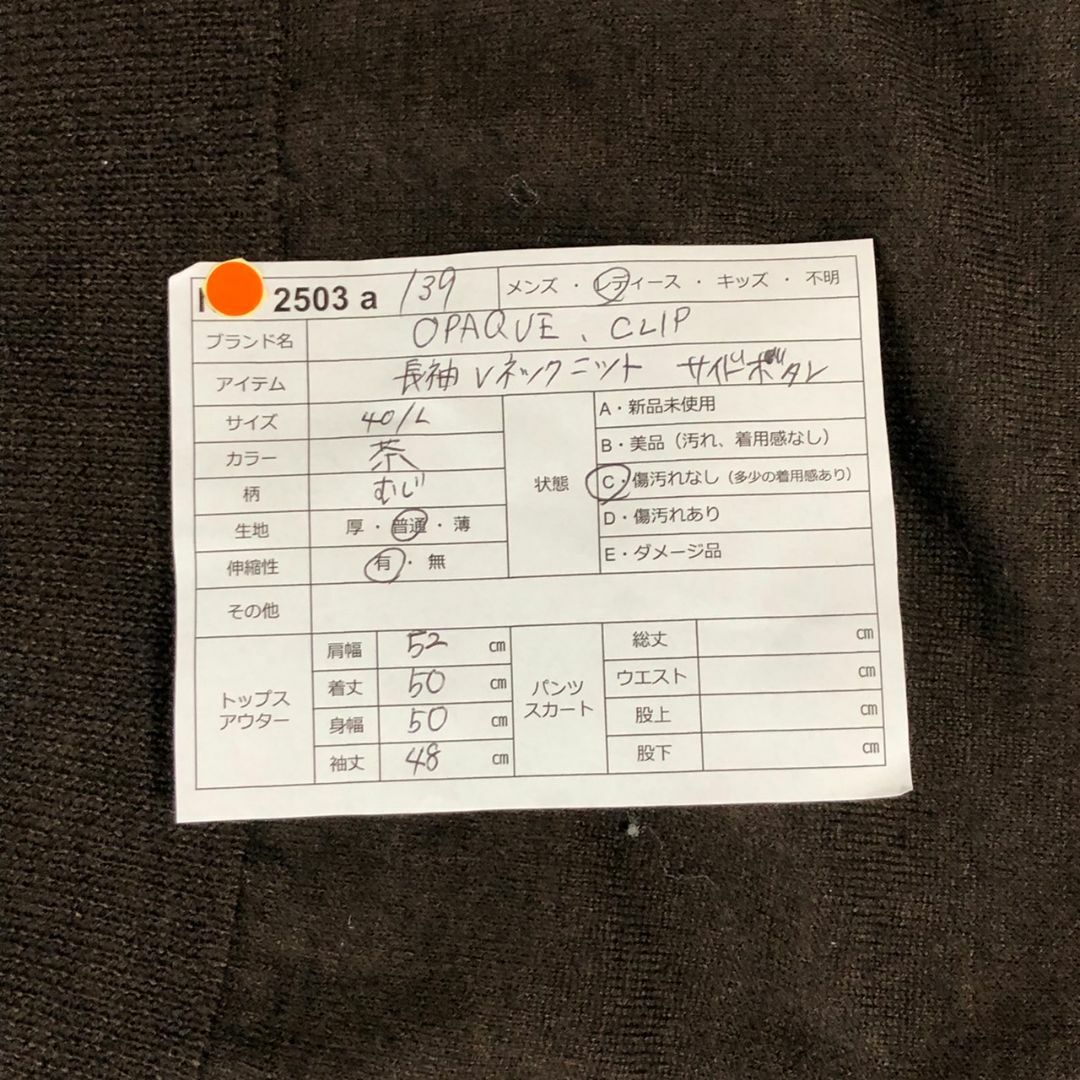 2503 a 139 メンズ・レディース・キッズ・不明
ブランド名 OPAQUE.CLIP
アイテム 長袖 Vネックニット サイドボタン
サイズ 40/L
カラー 茶
柄 むじ
生地 厚・普通・薄
伸縮性 有・無
状態
A・新品未使用
B・美品（汚れ、着用感なし）
C・傷汚れなし（多少の着用感あり）
D・傷汚れあり
E・ダメージ品
その他
トップス
アウター
肩幅 52 ㎝
着丈 50 ㎝
身幅 50 ㎝
袖丈 48 ㎝
パンツ
スカート
総丈 ㎝
ウエスト ㎝
股上 ㎝
股下 ㎝